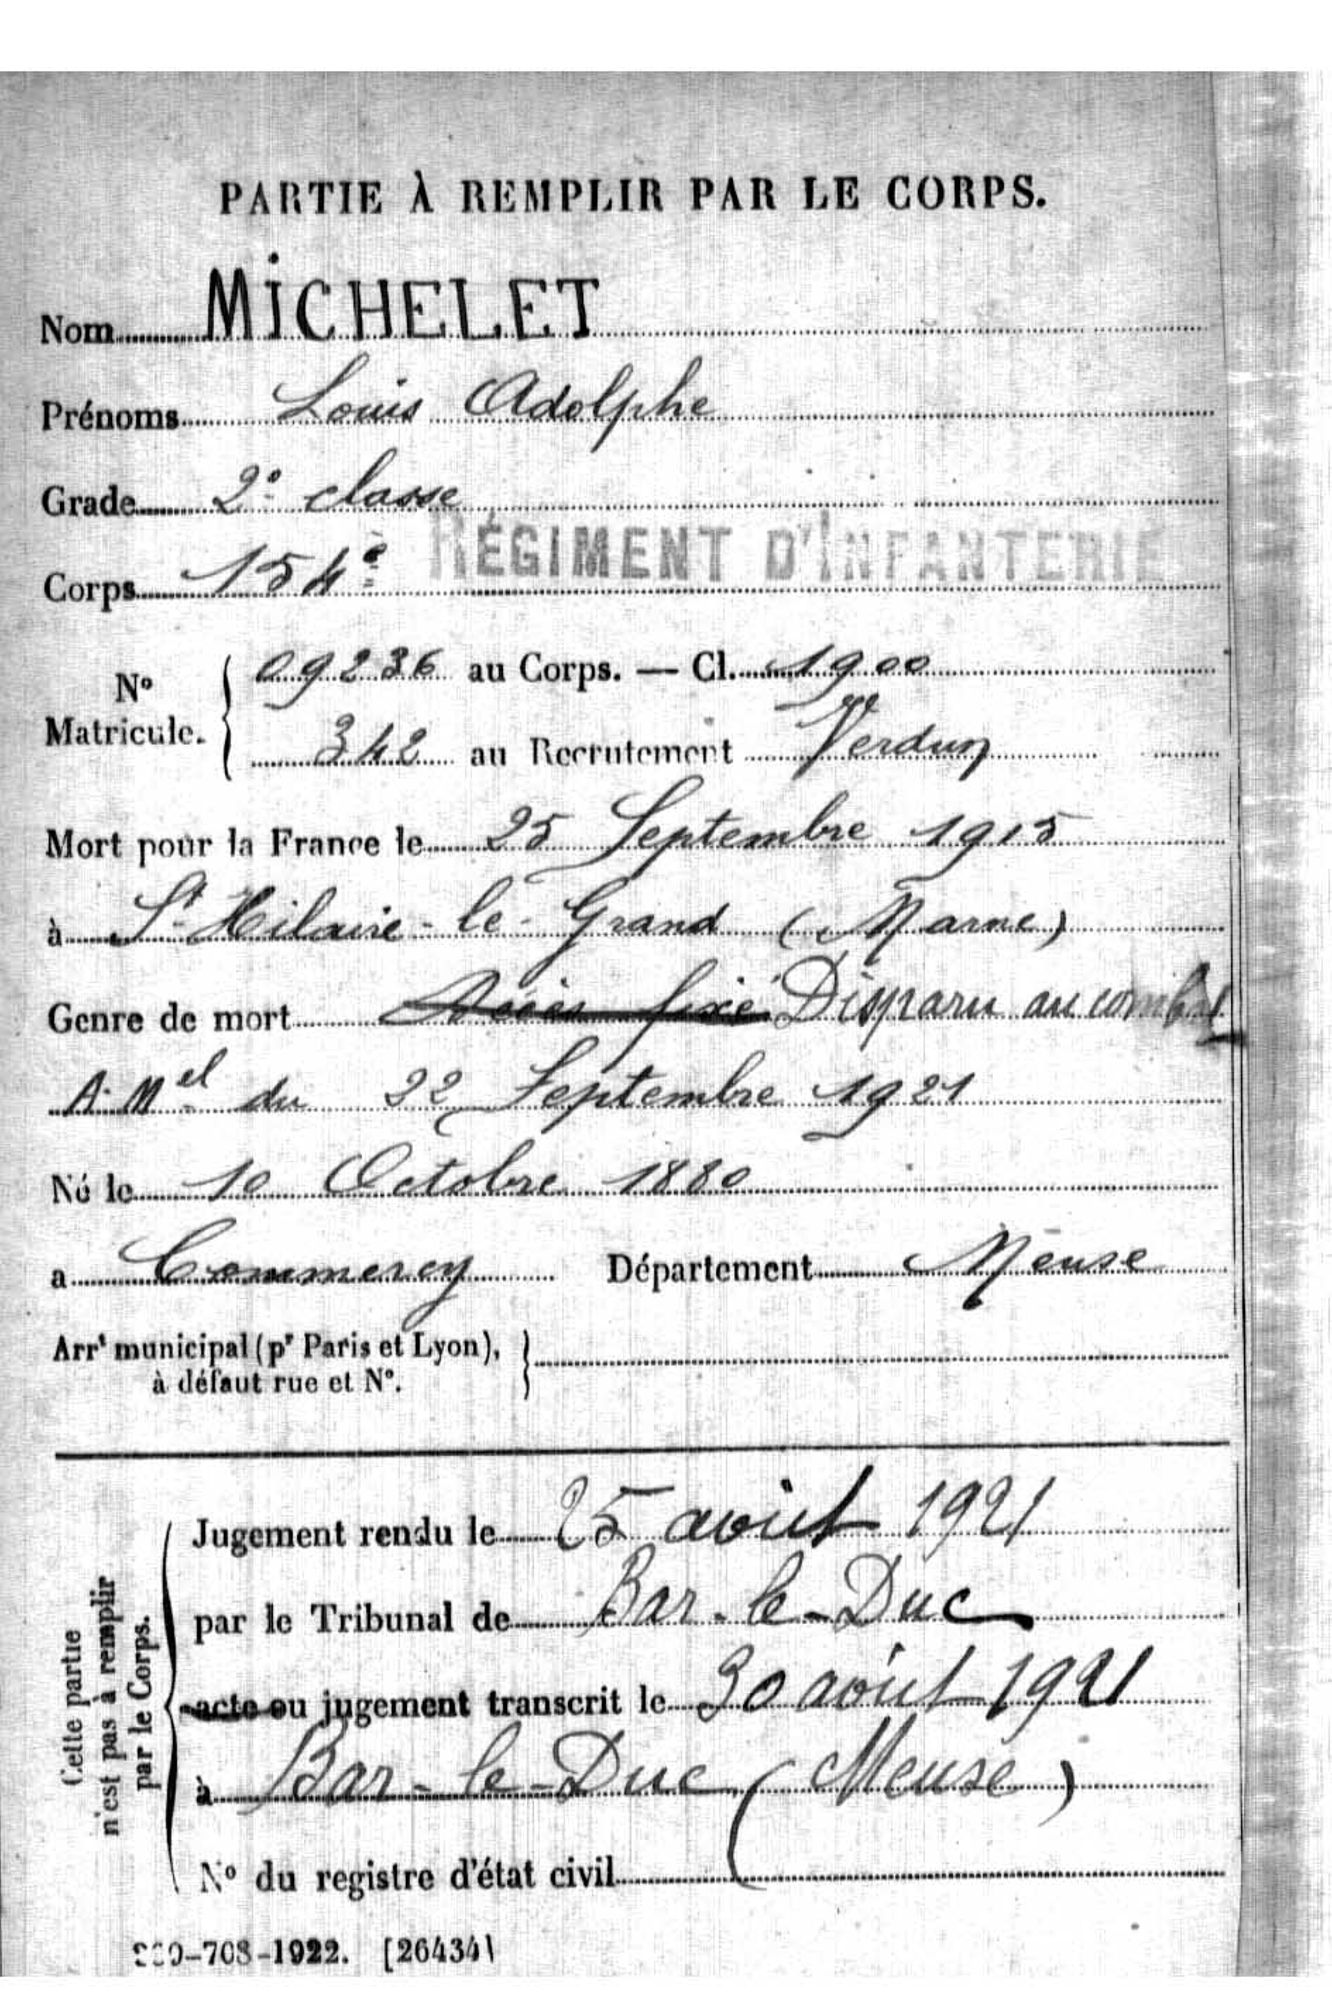 PARTIE À REMPLIR PAR LE CORPS.
Nom MICHELET
Prénoms Louis Adolphe
Grade 2e classe
Corps 154e RÉGIMENT D'INFANTERIE
No Matricule. 09236 au Corps. — Cl. 1900
342 au Recrutement Verdun
Mort pour la France le 25 Septembre 1915
à St Hilaire-le-Grand (Marne)
Genre de mort Décès fixé Disparu au combat
A. Mel du 22 Septembre 1921
Né le 10 Octobre 1880
à Commercy Département Meuse
Arrt municipal (pr Paris et Lyon),
à défaut rue et No.
Cette partie
n'est pas à remplir
par le Corps.
Jugement rendu le 25 août 1921
par le Tribunal de Bar-le-Duc
acte ou jugement transcrit le 30 août 1921
à Bar-le-Duc (Meuse)
No du registre d'état civil
-708-1922. [26434]